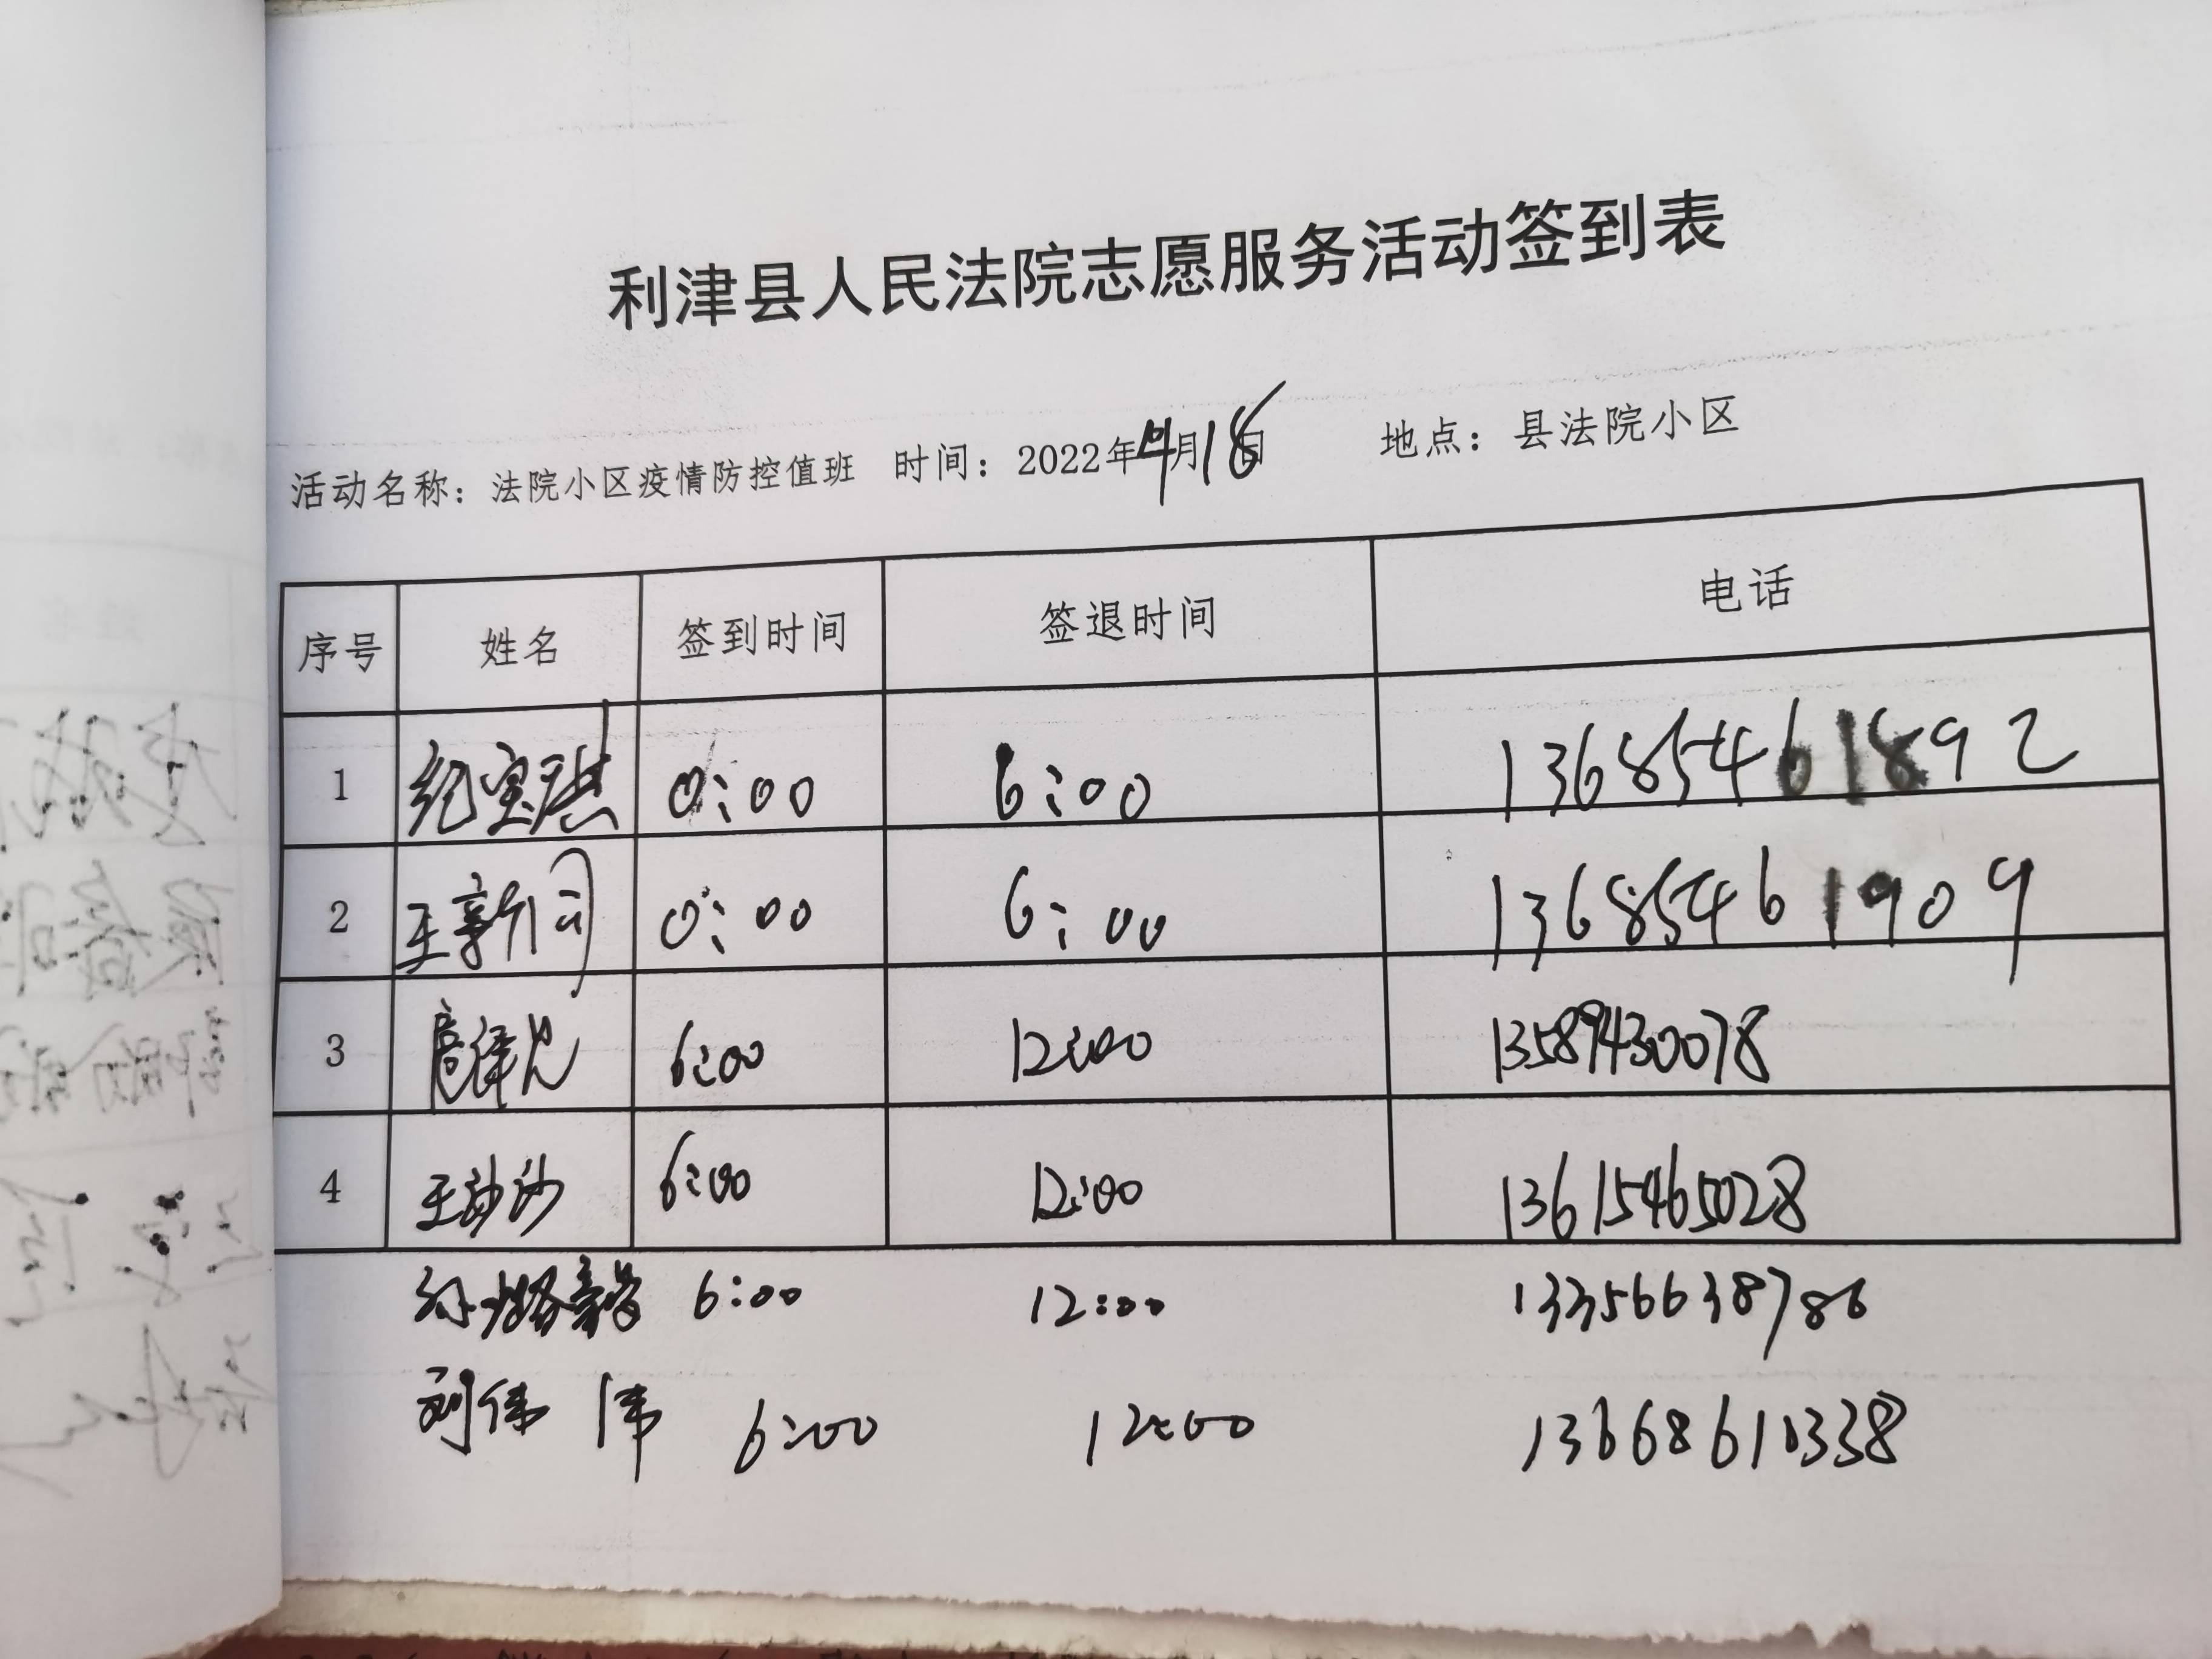 利津县人民法院志愿服务活动签到表
活动名称：法院小区疫情防控值班 时间：2022年4月18日 地点：县法院小区
序号 姓名 签到时间 签退时间 电话
1 纪宝琪 0:00 6:00 13685461892
2 王 0:00 6:00 13685461909
3 6:00 12:00 13589430078
4 王沙沙 6:00 12:00 13615465028
孙 6:00 12:00 13356638786
刘伟 6:00 12:00 13668610338